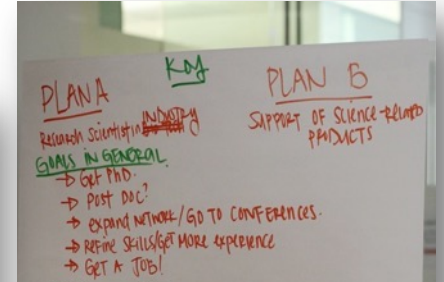 Kay
PLAN A
Research Scientist in INDUSTRY
GOALS IN GENERAL
→ Get PhD.
→ Post Doc?
→ expand Network/Go to conferences.
→ Refine skills/Get more experience
→ Get A Job!
PLAN B
SUPPORT OF SCIENCE-RELATED
PRODUCTS